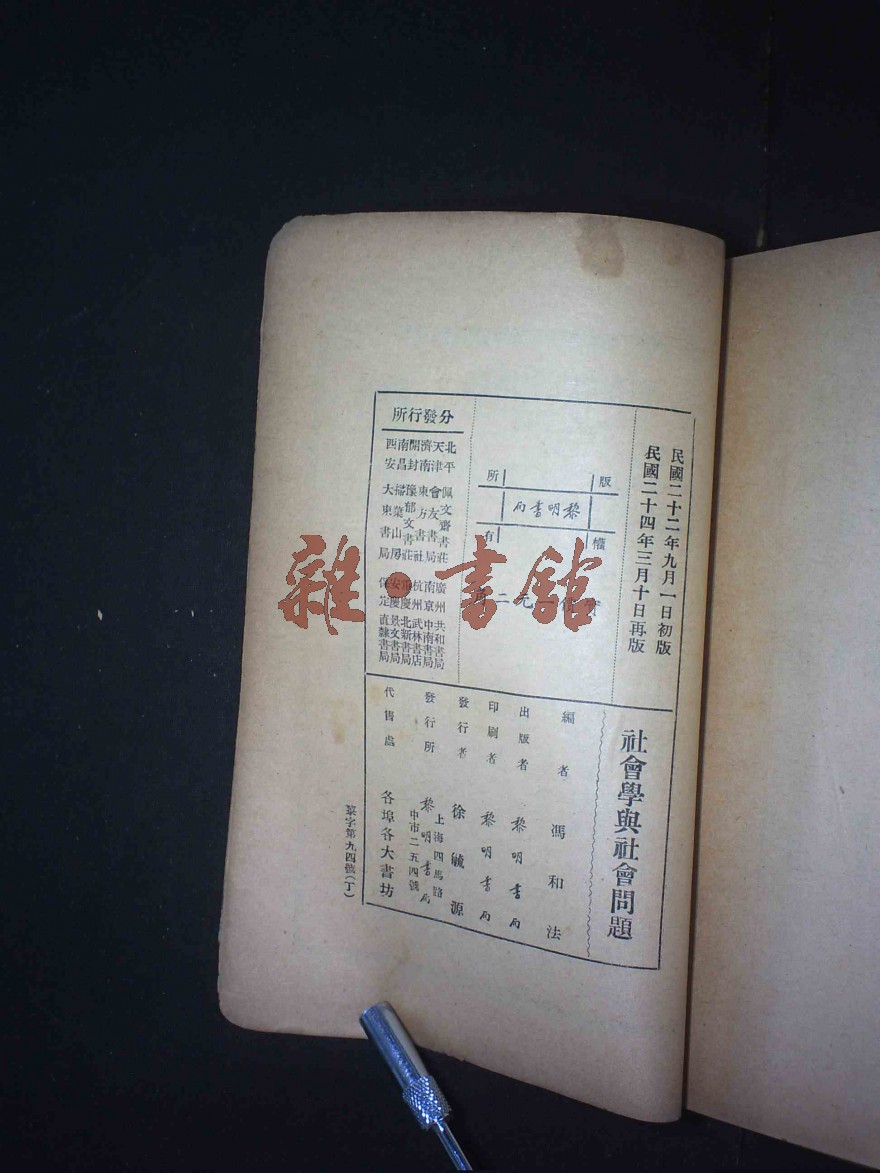 民國二十二年九月一日初版
民國二十四年三月十日再版
社會學與社會問題
版權
所有
黎明書局
實價一元二
編者 馮和法
出版者 黎明書局
印刷者 黎明書局
發行者 徐毓源
發行所 上海四馬路中市二五四號 黎明書局
代售處 各埠各大書坊
分發行所
北平 佩文齋書莊
天津 會友書局
濟南 東方書社
開封 豫郁文書莊
南昌 掃葉山房
西安 大東書局
廣州 共和書局
南京 中南書局
杭州 武林書店
重慶 北新書局
安慶 景文書局
保定 直隸書局
黎字第九四號(丁)
雜·書館